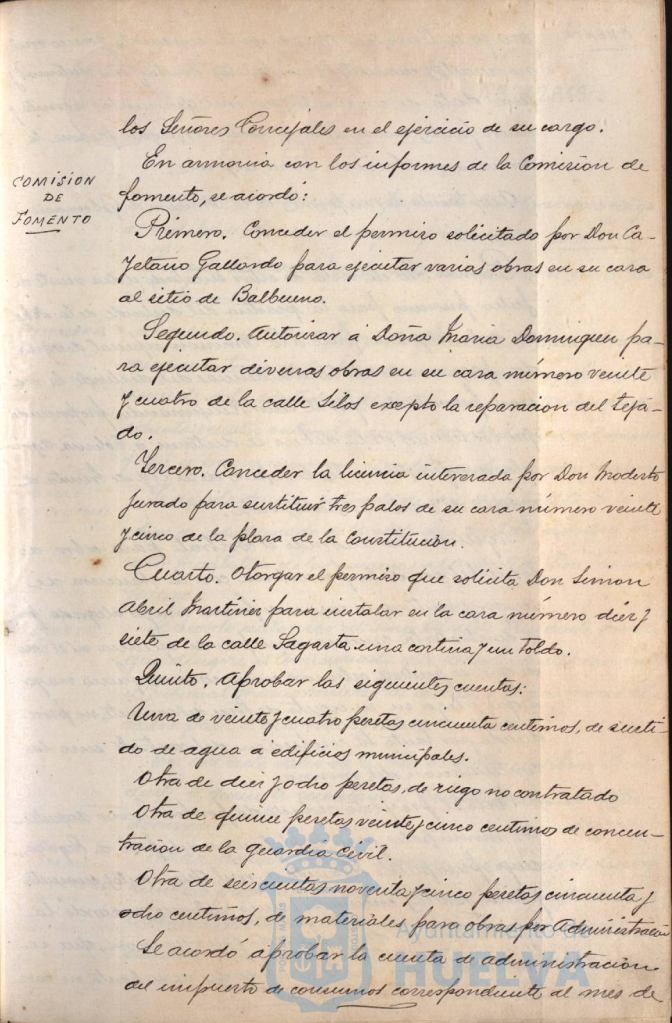 los Señores Concejales en el ejercicio de su cargo.
COMISION
DE
FOMENTO
En armonia con los informes de la Comision de
fomento, se acordó:
Primero. Conceder el permiso solicitado por Don Ca-
yetano Gallardo para ejecutar varias obras en su casa
al sitio de Balbueno.
Segundo. Autorizar á Doña Maria Dominguez pa-
ra ejecutar diversas obras en su casa número veinte
y cuatro de la calle Silos excepto la reparacion del teja-
do.
Tercero. Conceder la licencia interesada por Don Modesto
Jurado para sustituir tres palos de su casa número veinte
y cinco de la plaza de la Constitucion.
Cuarto. Otorgar el permiso que solicita Don Simon
Abril Martinez para instalar en la casa número diez y
siete de la calle Sagasta una cortina y un toldo.
Quinto. Aprobar las siguientes cuentas:
Una de veinte y cuatro pesetas cincuenta centimos, de surti-
do de agua á edificios municipales.
Otra de diez y ocho pesetas, de riego no contratado
Otra de quince pesetas veinte y cinco centimos de concen-
tracion de la guardia Civil.
Otra de seiscientas noventa y cinco pesetas cincuenta y
ocho centimos, de materiales para obras por Administracion
Se acordó aprobar la cuenta de administracion
del impuesto de consumos correspondiente al mes de
Ayuntamiento de
HUELVA